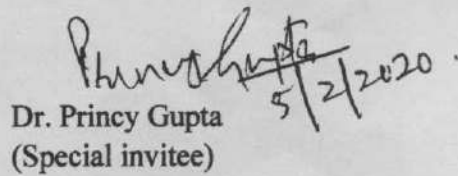 Princy Gupta
5/2/2020.
Dr. Princy Gupta
(Special invitee)